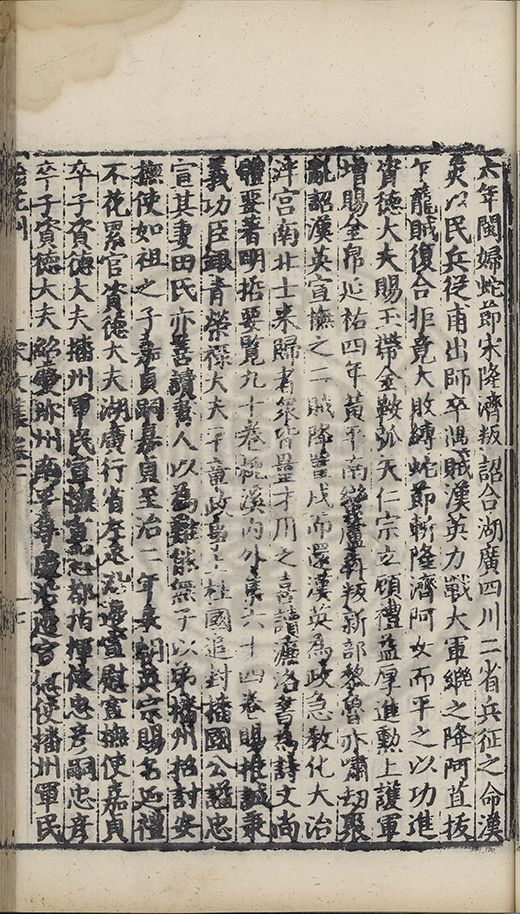 六年閩婦蛇節宋隆濟叛詔合湖廣四川二省兵征之命漢
英以民兵從甫出師卒遇賊漢英力戰大軍繼之降阿苴拔
乍籠賊復合拒竟大敗縛蛇節斬隆濟阿女而平之以功進
資德大夫賜玉帶金鞍弧矢仁宗立顧禮益厚進勳上護軍
增賜金帛延祐四年黃平南蠻蘆犇叛新部黎魯亦嘯刧聚
亂詔漢英宣撫之二賊降置戍而還漢英為政急敎化大治
泮宮南北士來歸者衆皆量才用之喜讀濂洛書為詩文尚
體要著明哲要覽九十卷桃溪內外集六十四卷賜推誠秉
義功臣銀青榮祿大夫平章政事上柱國追封播國公諡忠
宣其妻田氏亦善讀書人以為難能無子以弟播州招討安
撫使如祖之子嘉貞嗣嘉貞至治二年來朝英宗賜名延禮
不花累官資德大夫湖廣行省左丞沿邊宣慰宣撫使嘉貞
卒子資德大夫播州軍民宣撫都指揮使忠彥嗣忠彥
卒子資德大夫紹慶珍州南平等處沿邊宣慰使播州軍民